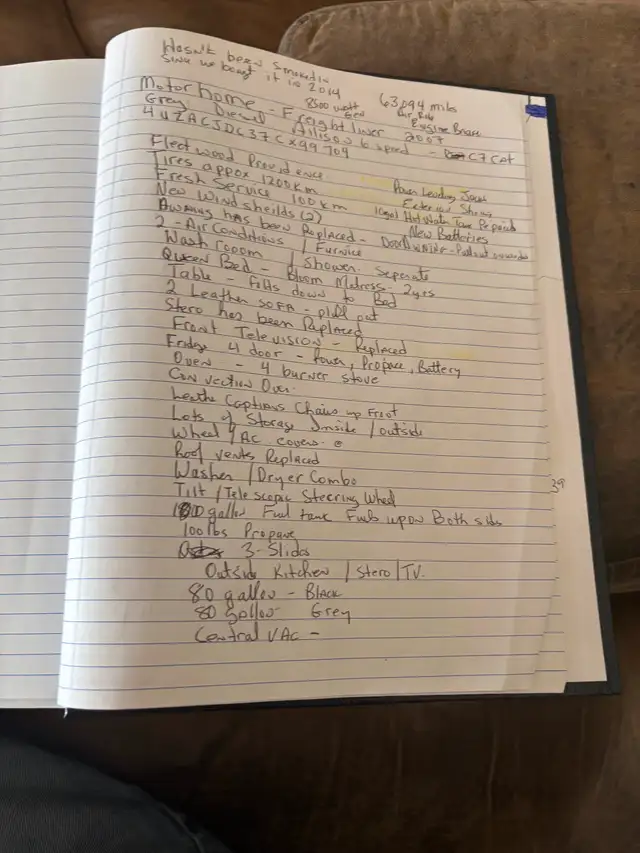 Hasn't been smoked in
Sinc we bougt it in 2014
63,094 mils
8500 watt Gen
Air Ride
Engine Brake
Motor home - Freight liner 2007
Grey Diesel Allison 6 speed - C7 Cat
4UZACJDC37CX99709
Fleetwood Providence
Tires appox 1200km
Power Leveling Jacks
Fresh Service 100km
Exterior Shower
New Windsheilds (2)
10gal Hot Water Tank
Awnings has been Replaced - Door Awning -
New Batteries
2 - Air Conditions / Furnice
Wash rooom / Shower Seperate
Queen Bed - Bloom Matress - 2yrs
Table - folds down to Bed
2 Leather SOFA - pull out
Stero has been Replaced
Front Television - Replaced
Fridge 4 door - Power, Propane, Battery
Oven - 4 burner stove
Convection Oven
Leathe Captions Chairs up Front
Lots of Storage Inside / outside
Wheel / AC covers
Roof vents Replaced
Washer / Dryer Combo
39
Tilt / Tele scopic Steering Wheel
100 gallon Fuel tank Fuels upon Both sids
100 lbs Propane
3 - Slides
Outside Kitchen / Stero / TV.
80 gallon - Black
80 gallon - Grey
Central VAC -